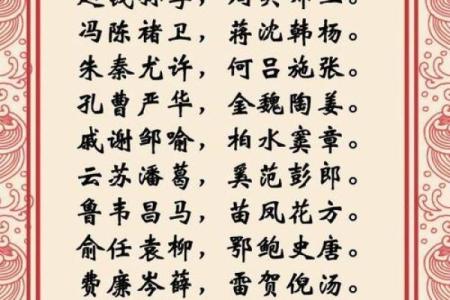 冯陈褚卫，蒋沈韩杨。
朱秦尤许，何吕施张。
孔曹严华，金魏陶姜。
戚谢邹喻，柏水窦章。
云苏潘葛，奚范彭郎。
鲁韦昌马，苗凤花方。
俞任袁柳，鄂鲍史唐。
费廉岑薛，雷贺倪汤。